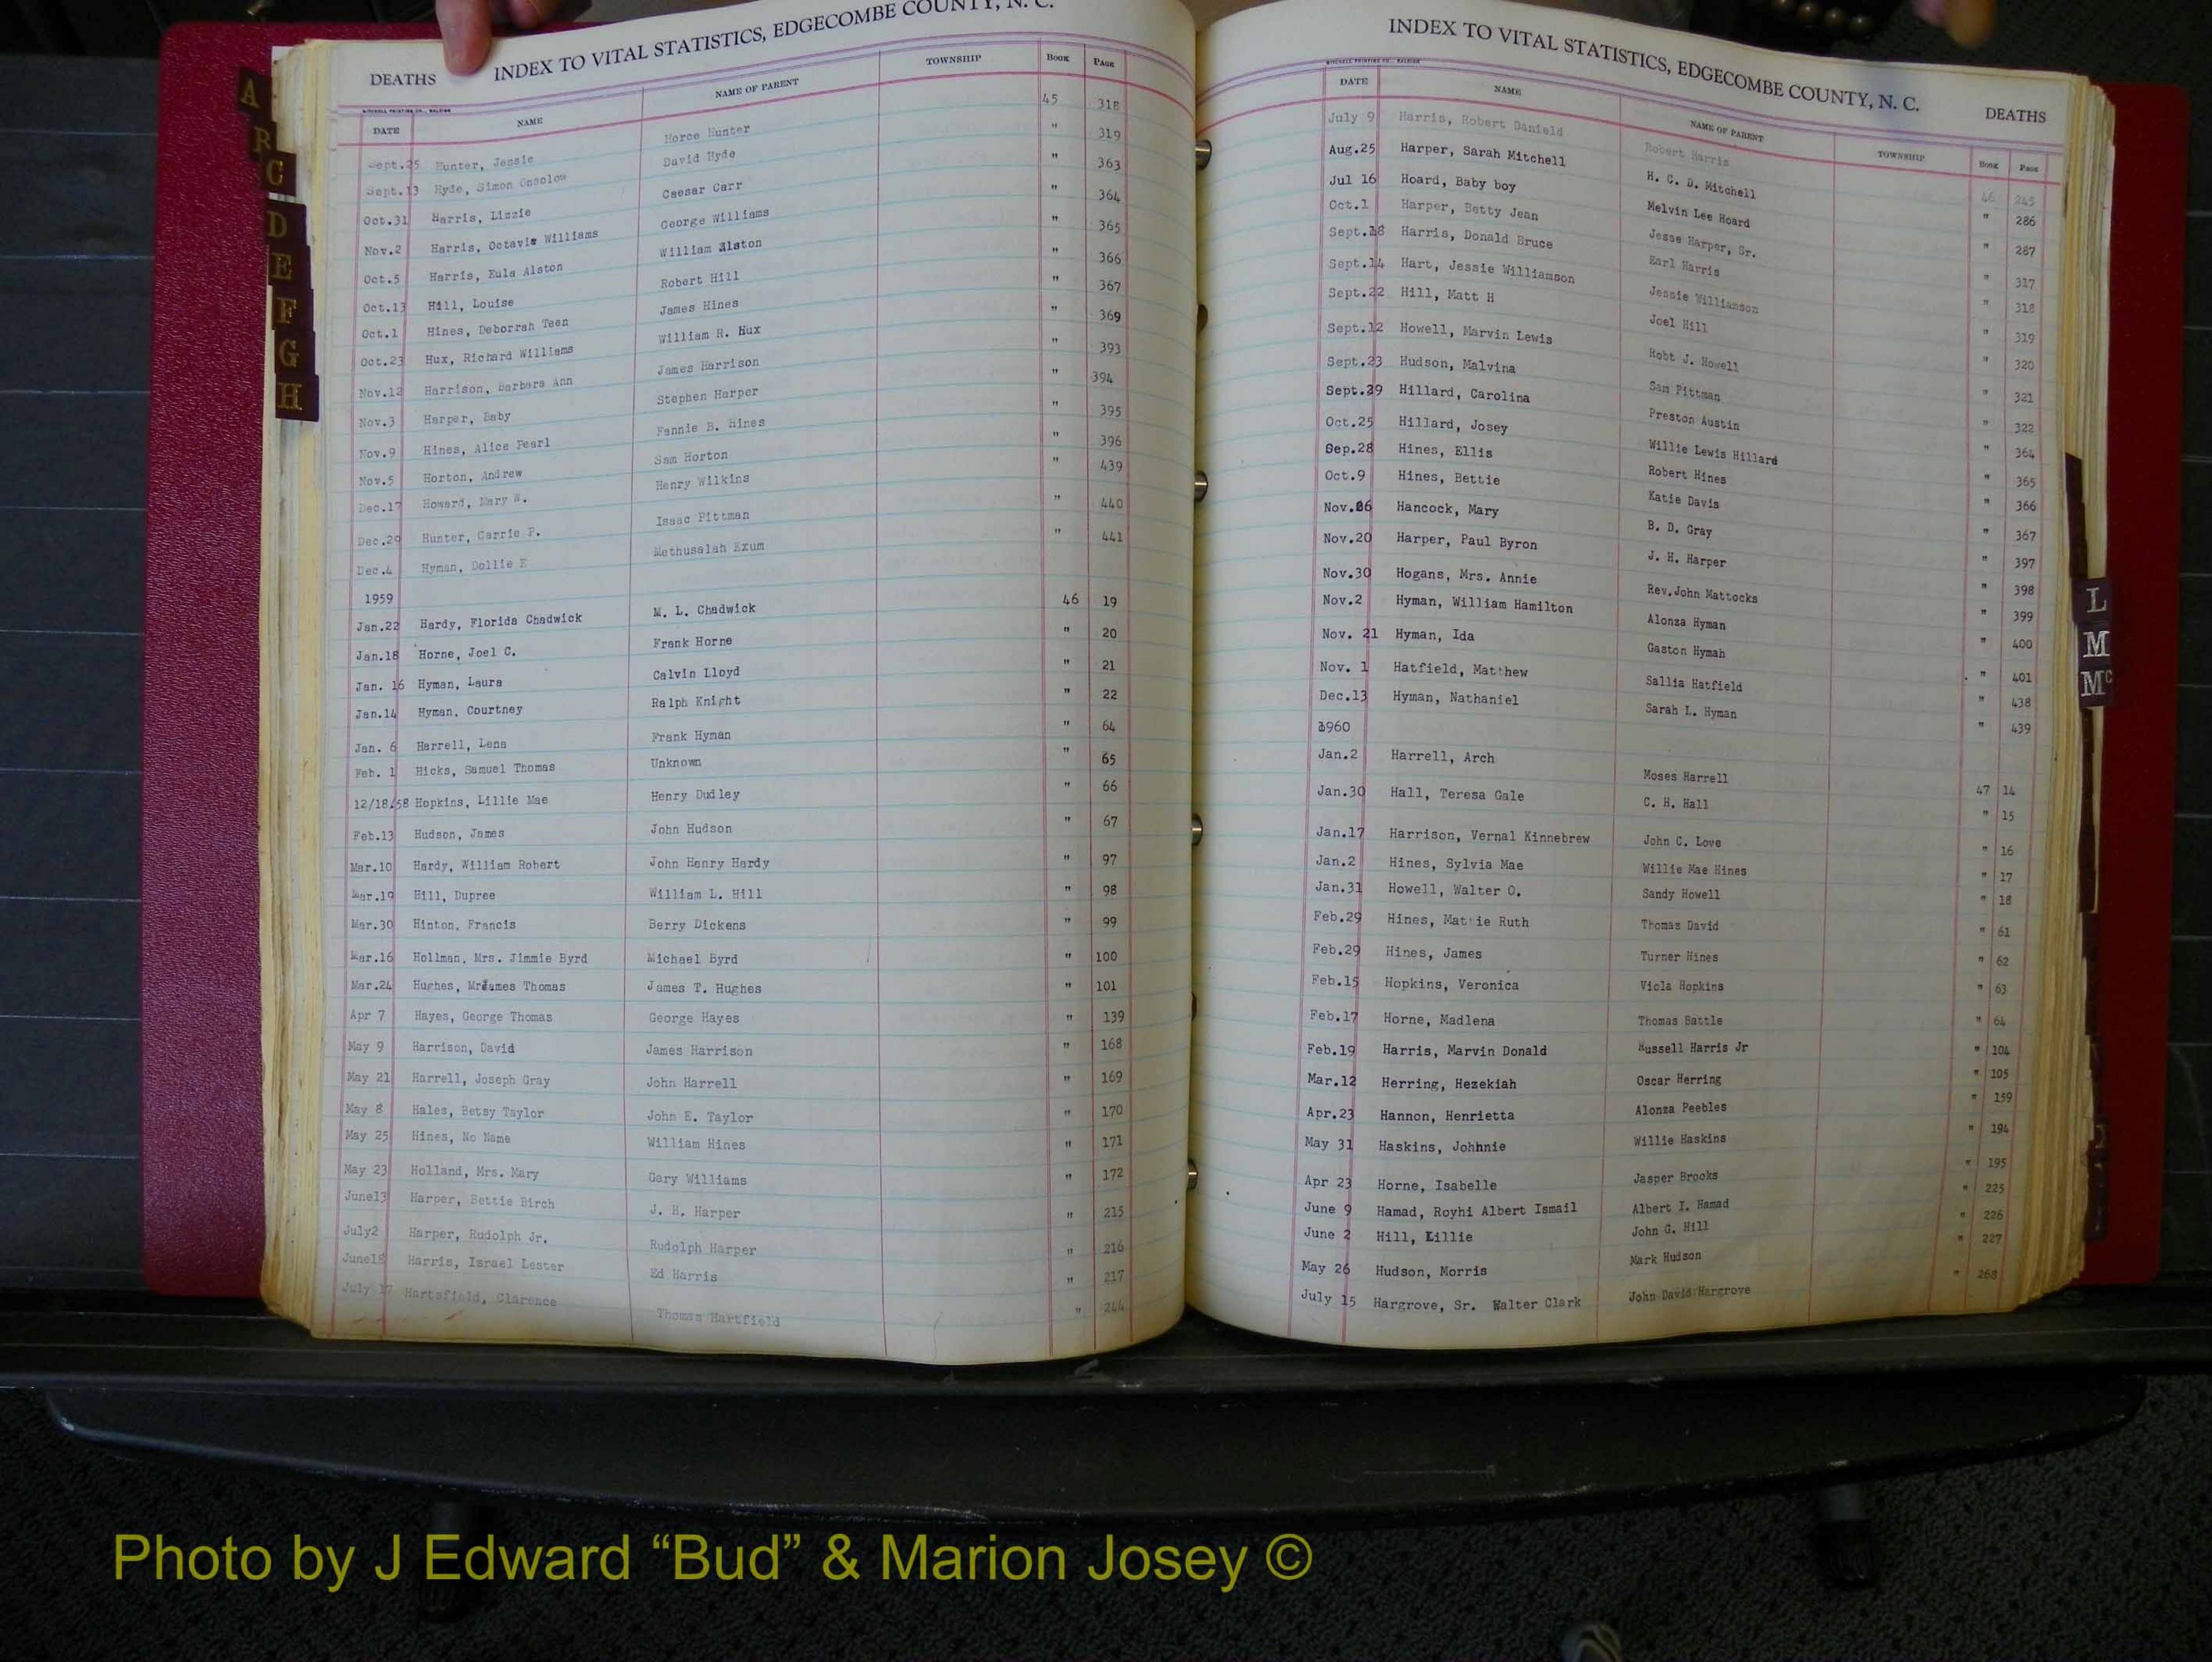 A
B
C
D
E
F
G
H
DEATHS INDEX TO VITAL STATISTICS, EDGECOMBE COUNTY, N. C.
MITCHELL PRINTING CO., RALEIGH
DATE NAME NAME OF PARENT TOWNSHIP BOOK PAGE
Sept.25 Hunter, Jessie Horce Hunter 45 318
Sept.13 Hyde, Simon Onsolow David Hyde " 319
Oct.31 Harris, Lizzie Caesar Carr " 363
Nov.2 Harris, Octavia Williams George Williams " 364
Oct.5 Harris, Eula Alston William Alston " 365
Oct.13 Hill, Louise Robert Hill " 366
Oct.1 Hines, Deborrah Teen James Hines " 367
Oct.23 Hux, Richard Williams William R. Hux " 369
Nov.12 Harrison, Barbara Ann James Harrison " 393
Nov.3 Harper, Baby Stephen Harper " 394
Nov.9 Hines, Alice Pearl Fannie B. Hines " 395
Nov.5 Horton, Andrew Sam Horton " 396
Dec.17 Howard, Mary W. Henry Wilkins " 439
Dec.29 Hunter, Carrie P. Isaac Pittman " 440
Dec.4 Hyman, Dollie E Methusalah Exum " 441
1959
Jan.22 Hardy, Florida Chadwick M. L. Chadwick 46 19
Jan.18 Horne, Joel C. Frank Horne " 20
Jan. 16 Hyman, Laura Calvin Lloyd " 21
Jan.14 Hyman, Courtney Ralph Knight " 22
Jan. 6 Harrell, Lena Frank Hyman " 64
Feb. 1 Hicks, Samuel Thomas Unknown " 65
12/18/58 Hopkins, Lillie Mae Henry Dudley " 66
Feb.13 Hudson, James John Hudson " 67
Mar.10 Hardy, William Robert John Henry Hardy " 97
Mar.19 Hill, Dupree William L. Hill " 98
Mar.30 Hinton, Francis Berry Dickens " 99
Mar.16 Hollman, Mrs. Jimmie Byrd Michael Byrd " 100
Mar.24 Hughes, Thomas James T. Hughes " 101
Apr 7 Hayes, George Thomas George Hayes " 139
May 9 Harrison, David James Harrison " 168
May 21 Harrell, Joseph Gray John Harrell " 169
May 8 Hales, Betsy Taylor John E. Taylor " 170
May 25 Hines, No Name William Hines " 171
May 23 Holland, Mrs. Mary Gary Williams " 172
June13 Harper, Bettie Birch J. H. Harper " 215
July2 Harper, Rudolph Jr. Rudolph Harper " 216
June18 Harris, Israel Lester Ed Harris " 217
July 17 Hartsfield, Clarence Thomas Hartfield " 244
INDEX TO VITAL STATISTICS, EDGECOMBE COUNTY, N. C. DEATHS
MITCHELL PRINTING CO., RALEIGH
DATE NAME NAME OF PARENT TOWNSHIP BOOK PAGE
July 9 Harris, Robert Danield Robert Harris 46 245
Aug.25 Harper, Sarah Mitchell H. C. D. Mitchell " 286
Jul 16 Hoard, Baby boy Melvin Lee Hoard " 287
Oct.1 Harper, Betty Jean Jesse Harper, Sr. " 317
Sept.18 Harris, Donald Bruce Earl Harris " 318
Sept.14 Hart, Jessie Williamson Jessie Williamson " 319
Sept.22 Hill, Matt H Joel Hill " 320
Sept.12 Howell, Marvin Lewis Robt J. Howell " 321
Sept.23 Hudson, Malvina Sam Pittman " 322
Sept.29 Hillard, Carolina Preston Austin " 364
Oct.25 Hillard, Josey Willie Lewis Hillard " 365
Sep.28 Hines, Ellis Robert Hines " 366
Oct.9 Hines, Bettie Katie Davis " 367
Nov.06 Hancock, Mary B. D. Gray " 397
Nov.20 Harper, Paul Byron J. H. Harper " 398
Nov.30 Hogans, Mrs. Annie Rev.John Mattocks " 399
Nov.2 Hyman, William Hamilton Alonza Hyman " 400
Nov. 21 Hyman, Ida Gaston Hymah " 401
Nov. 1 Hatfield, Matthew Sallia Hatfield " 438
Dec.13 Hyman, Nathaniel Sarah L. Hyman " 439
1960
Jan.2 Harrell, Arch Moses Harrell 47 14
Jan.30 Hall, Teresa Gale C. H. Hall " 15
Jan.17 Harrison, Vernal Kinnebrew John C. Love " 16
Jan.2 Hines, Sylvia Mae Willie Mae Hines " 17
Jan.31 Howell, Walter O. Sandy Howell " 18
Feb.29 Hines, Mattie Ruth Thomas David " 61
Feb.29 Hines, James Turner Hines " 62
Feb.15 Hopkins, Veronica Viola Hopkins " 63
Feb.17 Horne, Madlena Thomas Battle " 64
Feb.19 Harris, Marvin Donald Russell Harris Jr " 104
Mar.12 Herring, Hezekiah Oscar Herring " 105
Apr.23 Hannon, Henrietta Alonza Peebles " 159
May 31 Haskins, Johhnie Willie Haskins " 194
Apr 23 Horne, Isabelle Jasper Brooks " 195
June 9 Hamad, Royhi Albert Ismail Albert I. Hamad " 225
June 2 Hill, Lillie John G. Hill " 226
May 26 Hudson, Morris Mark Hudson " 227
July 15 Hargrove, Sr. Walter Clark John David Hargrove " 268
L
M
Mc
Photo by J Edward “Bud” & Marion Josey ©